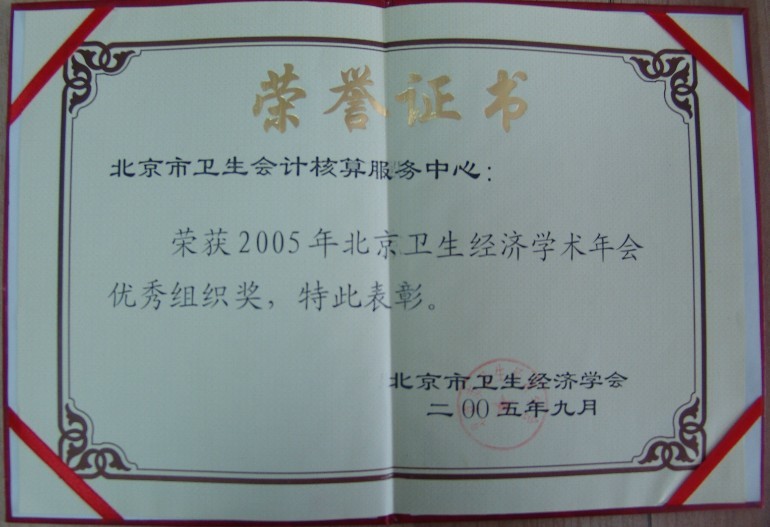 荣誉证书
北京市卫生会计核算服务中心：
荣获2005年北京卫生经济学术年会
优秀组织奖，特此表彰。
北京市卫生经济学会
二00五年九月